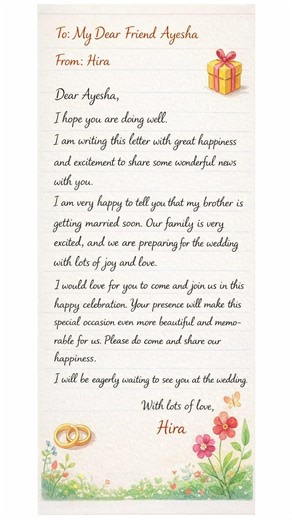 To: My Dear Friend Ayesha
From: Hira
Dear Ayesha,
I hope you are doing well.
I am writing this letter with great happiness
and excitement to share some wonderful news
with you.
I am very happy to tell you that my brother is
getting married soon. Our family is very
excited, and we are preparing for the wedding
with lots of joy and love.
I would love for you to come and join us in this
happy celebration. Your presence will make this
special occasion even more beautiful and memo-
rable for us. Please do come and share our
happiness.
I will be eagerly waiting to see you at the wedding.
With lots of love,
Hira